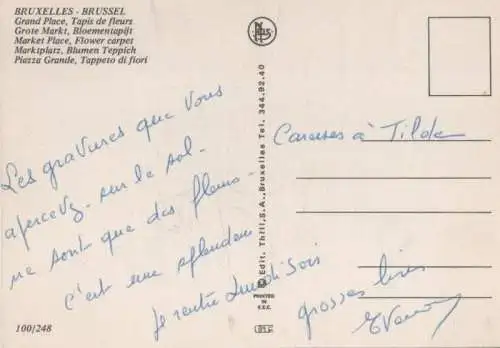 BRUXELLES - BRUSSEL
Grand Place, Tapis de fleurs
Grote Markt, Bloementapijt
Market Place, Flower carpet
Marktplatz, Blumen Teppich
Piazza Grande, Tappeto di fiori
Les gravures que vous
apercevez sur le sol
ne sont que des fleurs.
c'est une splendeur
Je rentre Lundi Soir
100/248
© Edit. Thill, S.A., Bruxelles Tel. 344.92.40
PRINTED
IN
E.E.C.
Caresses à Tilda
grosses bises